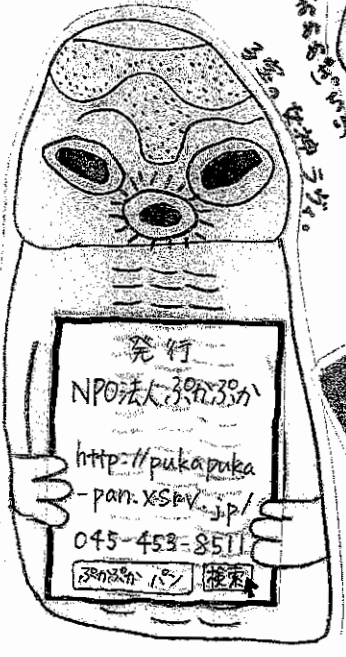 子宝の女神ラヴィ。
発行
NPO法人ぷかぷか
http://pukapuka
-pan.xsrv.jp/
045-453-8511
ぷかぷか パン 検索